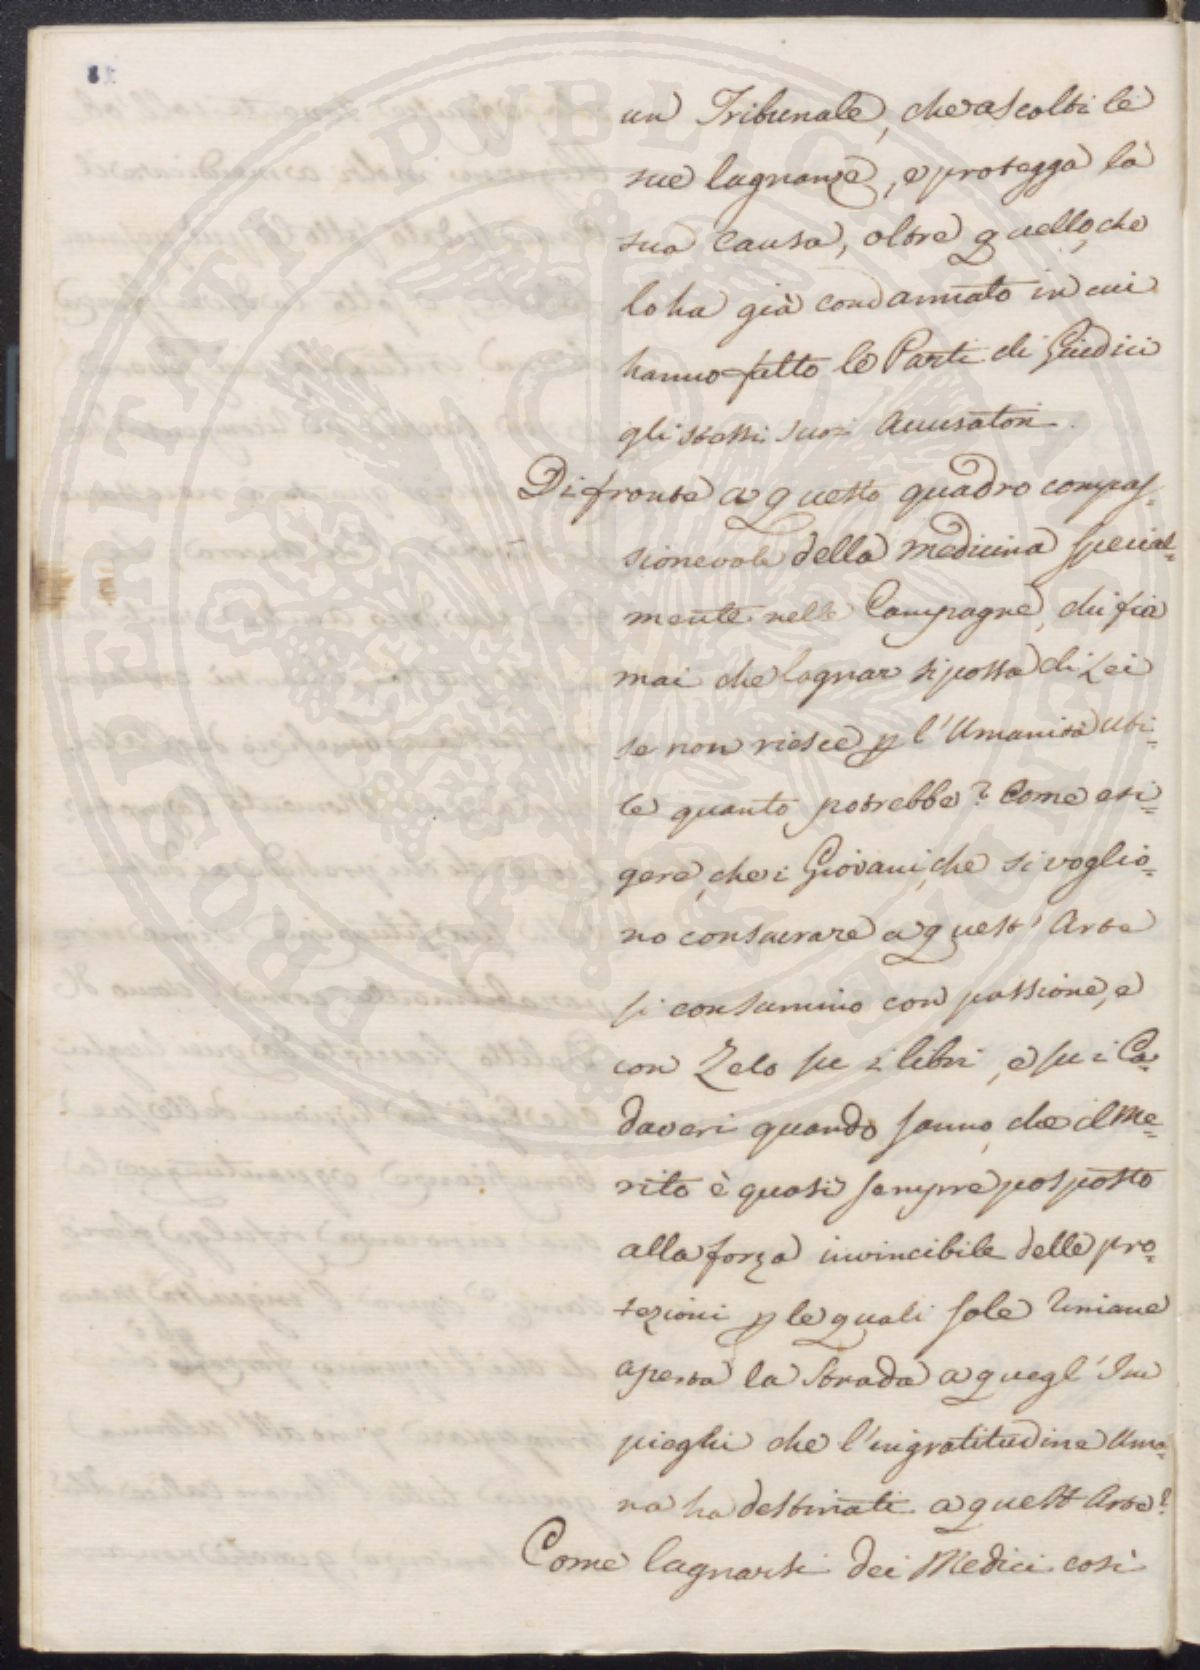 un Tribunale, che ascolti le
sue lagnanze, e protegga la
sua Causa, oltre quello, che
lo ha già condannato in cui
hanno fatto le Parti di Giudici
gli stessi suoi Accusatori.
Di fronte a questo quadro compas=
sionevole della Medicina special=
mente nelle Campagne, chi fia
mai che lagnar si possa di Lei
se non riesce p l'Umanità uti=
le quanto potrebbe? Come esi=
gere, che i Giovani, che si voglio=
no consacrare a quest' Arte
si consumino con passione, e
con Zelo su i libri, e su i Ca=
daveri quando sanno, che il Me=
rito è quasi sempre posposto
alla forza invincibile delle pro=
tezioni p le quali sole rimane
aperta la Strada a quegl' Im
pieghi che l'ingratitudine Uma=
na ha destinati a quest Arte?
Come lagnarsi dei Medici così